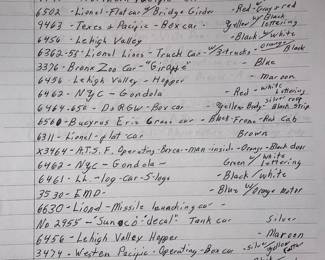 6502 - Lionel - Flatcar w/ Bridge Girder - Red - Gray + red
9463 - Texas & Pacific - Boxcar - Yellow w/ Black lettering
6456 - Lehigh Valley - Black w/ white
6362-55 - Lionel Lines - Truck Car - w/ 3 trucks - orange / Black
3376 - Bronx Zoo Car - "Giraffe" - Blue
6456 - Lehigh Valley - Hopper - maroon
6462 - NYC - Gondola - Red w/ white lettering
6464-650 - D&RGW - Box car - Yellow Body - silver roof Black strip
6560 - Bucyrus Erie Crane Car - Black - Frame - Red Cab
6311 - Lionel - flat car Brown
X3464 - A.T.S.F. Operating - Boxcar - man inside - Orange - Black door
6462 - NYC - Gondola - Green w/ white lettering
6461 - LL - log - car - 5 - logs - Black / white
3530 - EMD - - Blue w/ Orange motor
6630 - Lionel - Missile launching car -
No 2955 - "Sunoco" decal" Tank car Silver
6456 - Lehigh Valley Hopper - Maroon
3474 - Western Pacific - Operating - Boxcar - silver / yellow